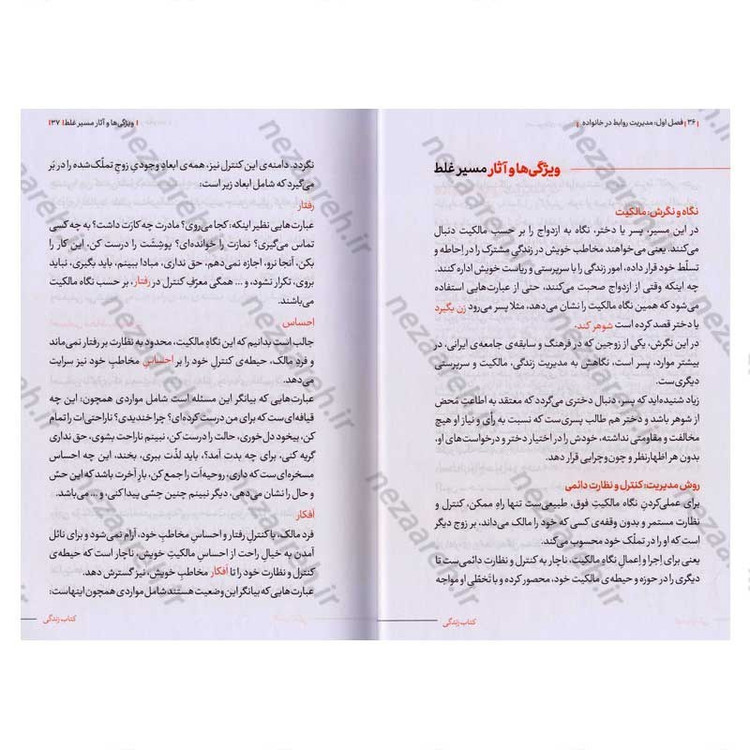 ۳۶ | فصل اول، مدیریت روابط در خانواده |
ویژگی‌ها و آثار مسیر غلط
نگاه و نگرش: مالکیت
در این مسیر، پسر یا دختر، نگاه به ازدواج را بر حسب مالکیت دنبال
می‌کنند. یعنی می‌خواهند مخاطب خویش در زندگیِ مشترک را در اِحاطه و
تسلّط خود قرار داده، امور زندگی را با سرپرستی و ریاست خویش اداره کنند.
چه اینکه وقتی از ازدواج صحبت می‌کنند، حتی از عبارت‌هایی استفاده
می‌شود که همین نگاه مالکیت را نشان می‌دهد، مثلا پسر می‌رود زن بگیرد
یا دختر قصد کرده است شوهر کند.
در این نگرش، یکی از زوجین که در فرهنگ و سابقه‌ی جامعه‌ی ایرانی، در
بیشتر موارد، پسر است، نگاهش به مدیریت زندگی، مالکیت و سرپرستی
دیگری‌ست.
زیاد شنیده‌اید که پسر، دنبال دختری می‌گردد که معتقد به اطاعتِ مَحض
از شوهر باشد و دختر هم طالب پسری‌ست که نسبت به رأی و نیاز او هیچ
مخالفت و مقاومتی نداشته، خودش را در اختیار دختر و درخواست‌های او،
بدون هر اظهارنظر و چون‌وچرایی قرار دهد.
روش مدیریت: کنترل و نظارت دائمی
برای عملی‌کردنِ نگاه مالکیتِ فوق، طبیعی‌ست تنها راهِ ممکن، کنترل و
نظارت مستمر و بدون وقفه‌ی کسی که خود را مالک می‌داند، بر زوج دیگر
است که او را در تملّک خود محسوب می‌کند.
یعنی برای اِجرا و اِعمالِ نگاهِ مالکیت، ناچار به کنترل و نظارت دائمی‌ست تا
دیگری را در حوزه و حیطه‌ی مالکیت خود، محصور کرده و با تَخطّی او مواجه
کتاب زندگی
| ویژگی‌ها و آثار مسیر غلط | ۳۷
نگردد. دامنه‌ی این کنترل نیز، همه‌ی ابعادِ وجودیِ زوجِ تملّک‌شده را در بَر
می‌گیرد که شامل ابعاد زیر است:
رفتار
عبارت‌هایی نظیر اینکه: کجا می‌روی؟ مادرت چه کارَت داشت؟ به چه کسی
تماس می‌گیری؟ نمازت را خوانده‌ای؟ پوشِشَت را درست کن، این کار را
بکن، آنجا نرو، اجازه نمی‌دهم، حق نداری، مبادا ببینم، باید بگیری، نباید
بروی، تکرار نشود، و ... همگی معرّفِ کنترل در رفتار، بر حسب نگاه مالکیت
می‌باشند.
احساس
جالب است بدانیم که این نگاهِ مالکیت، محدود به نظارت بر رفتار نمی‌ماند
و فردِ مالک، حیطه‌ی کنترلِ خود را بر احساسِ مخاطبِ خود نیز سرایت
می‌دهد.
عبارت‌هایی که بیانگر این مسئله است شامل مواردی همچون: این چه
قیافه‌ای‌ست که برای من درست کرده‌ای؟ چرا خندیدی؟ ناراحتی‌ات را تمام
کن، بیخود دل‌خوری، حالت را درست کن، نبینم ناراحت بشوی، حق نداری
گریه کنی، برای چه بدت آمد؟، باید لذّت ببری، بخند، این چه احساسِ
مسخره‌ای‌ست که داری، روحیه‌اَت را جمع کن، بار آخرت باشد که این حسّ
و حال را نشان می‌دهی، دیگر نبینم چنین حِسّی پیدا کنی، و ... می‌باشد.
افکار
فرد مالک، با کنترلِ رفتار و احساسِ مخاطبِ خود، آرام نمی‌شود و برای نائل
آمدن به خیالِ راحت از احساس مالکیتِ خویش، ناچار است که حیطه‌ی
کنترل و نظارت خود را تا اَفکار مخاطب خویش، نیز گسترش دهد.
عبارت‌هایی که بیانگر این وضعیت هستند شامل مواردی همچون اینهاست:
کتاب زندگی
nezaareh.ir